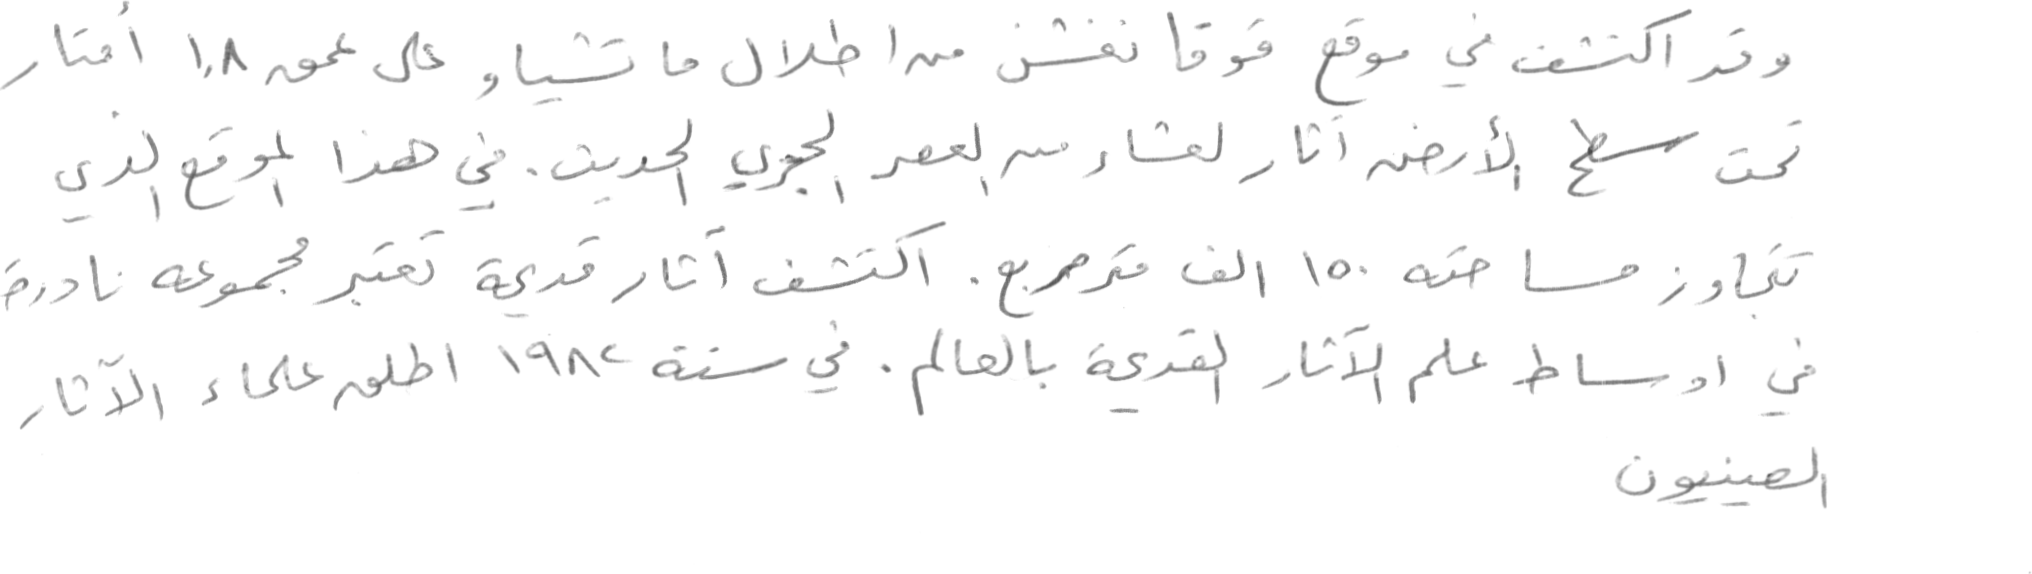 وقد اكتشف في موقع قوقا نغشن من اطلال ما تشياو على عمق ١,٨ أمتار
تحت سطح الأرض آثار لعشاء من العصر الحجري الحديث. في هذا الموقع الذي
تتجاوز مساحته ١٥٠ الف متر مربع. اكتشف آثار قديمة تعتبر مجموعه نادرة
في اوساط علم الآثار القديمة بالعالم. في سنة ١٩٨٢ اطلق علماء الآثار
الصينيون